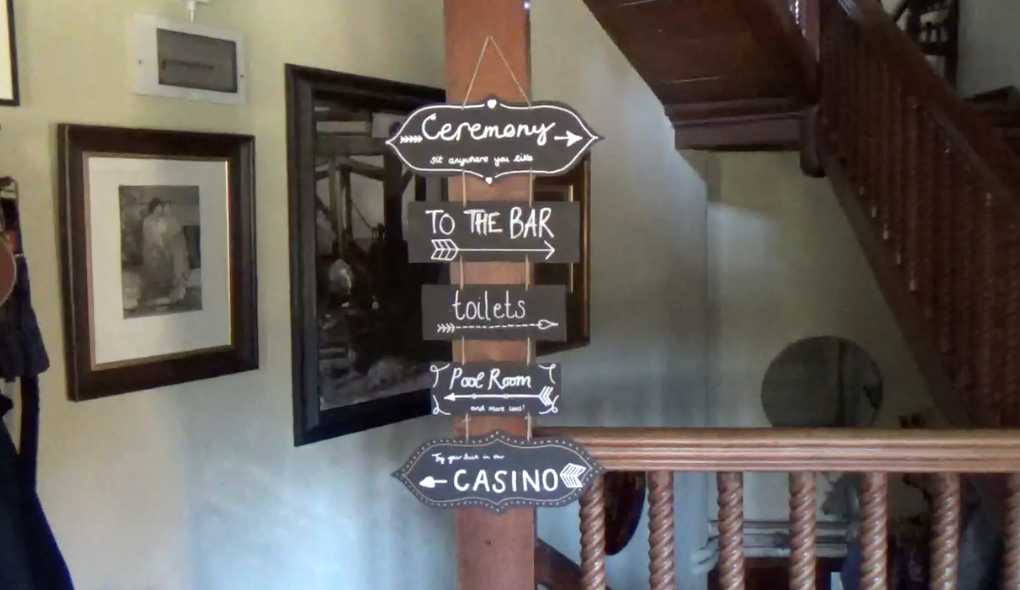 Ceremony
sit anywhere you like
TO THE BAR
toilets
Pool Room
and more loos!
Try your luck in our
CASINO